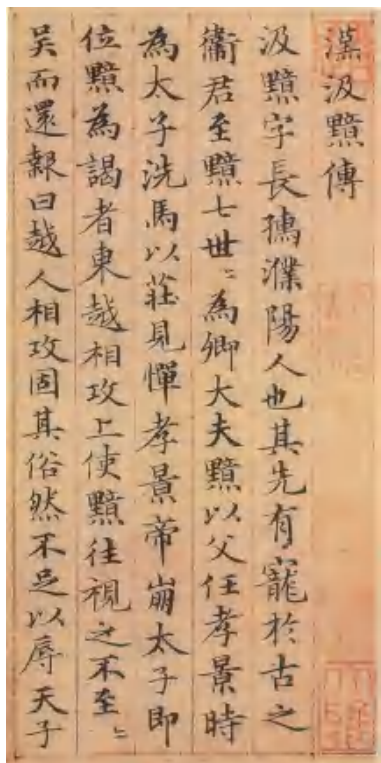 漢汲黯傳
汲黯字長孺濮陽人也其先有寵於古之
衞君至黯七世〻為卿大夫黯以父任孝景時
為太子洗馬以莊見憚孝景帝崩太子即
位黯為謁者東越相攻上使黯往視之不至〻
吴而還報曰越人相攻固其俗然不足以辱天子